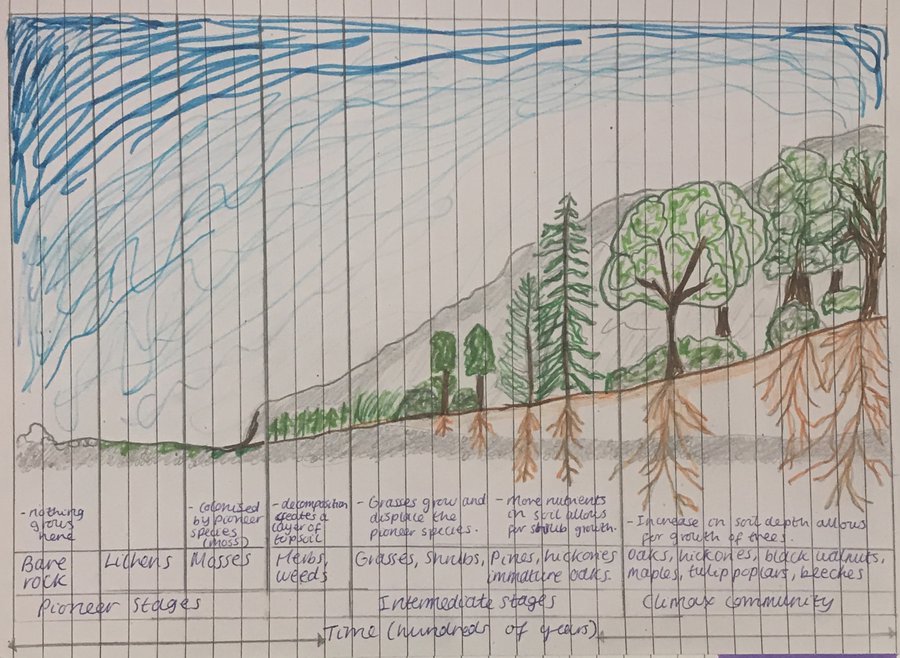 - nothing
grows
here
- colonised
by pioneer
species
(moss)
- decomposition
creates a
layer of
topsoil
- Grasses grow and
displace the
pioneer species.
- More nutrients
in soil allows
for shrub growth.
- Increase in soil depth allows
for growth of trees.
Bare
rock
Lichens
Mosses
Herbs,
weeds
Grasses, shrubs, Pines, hickories
immature oaks.
Oaks, hickories, black walnuts,
maples, tulip poplars, beeches
Pioneer stages
Intermediate stages
Climax community
Time (hundreds of years)